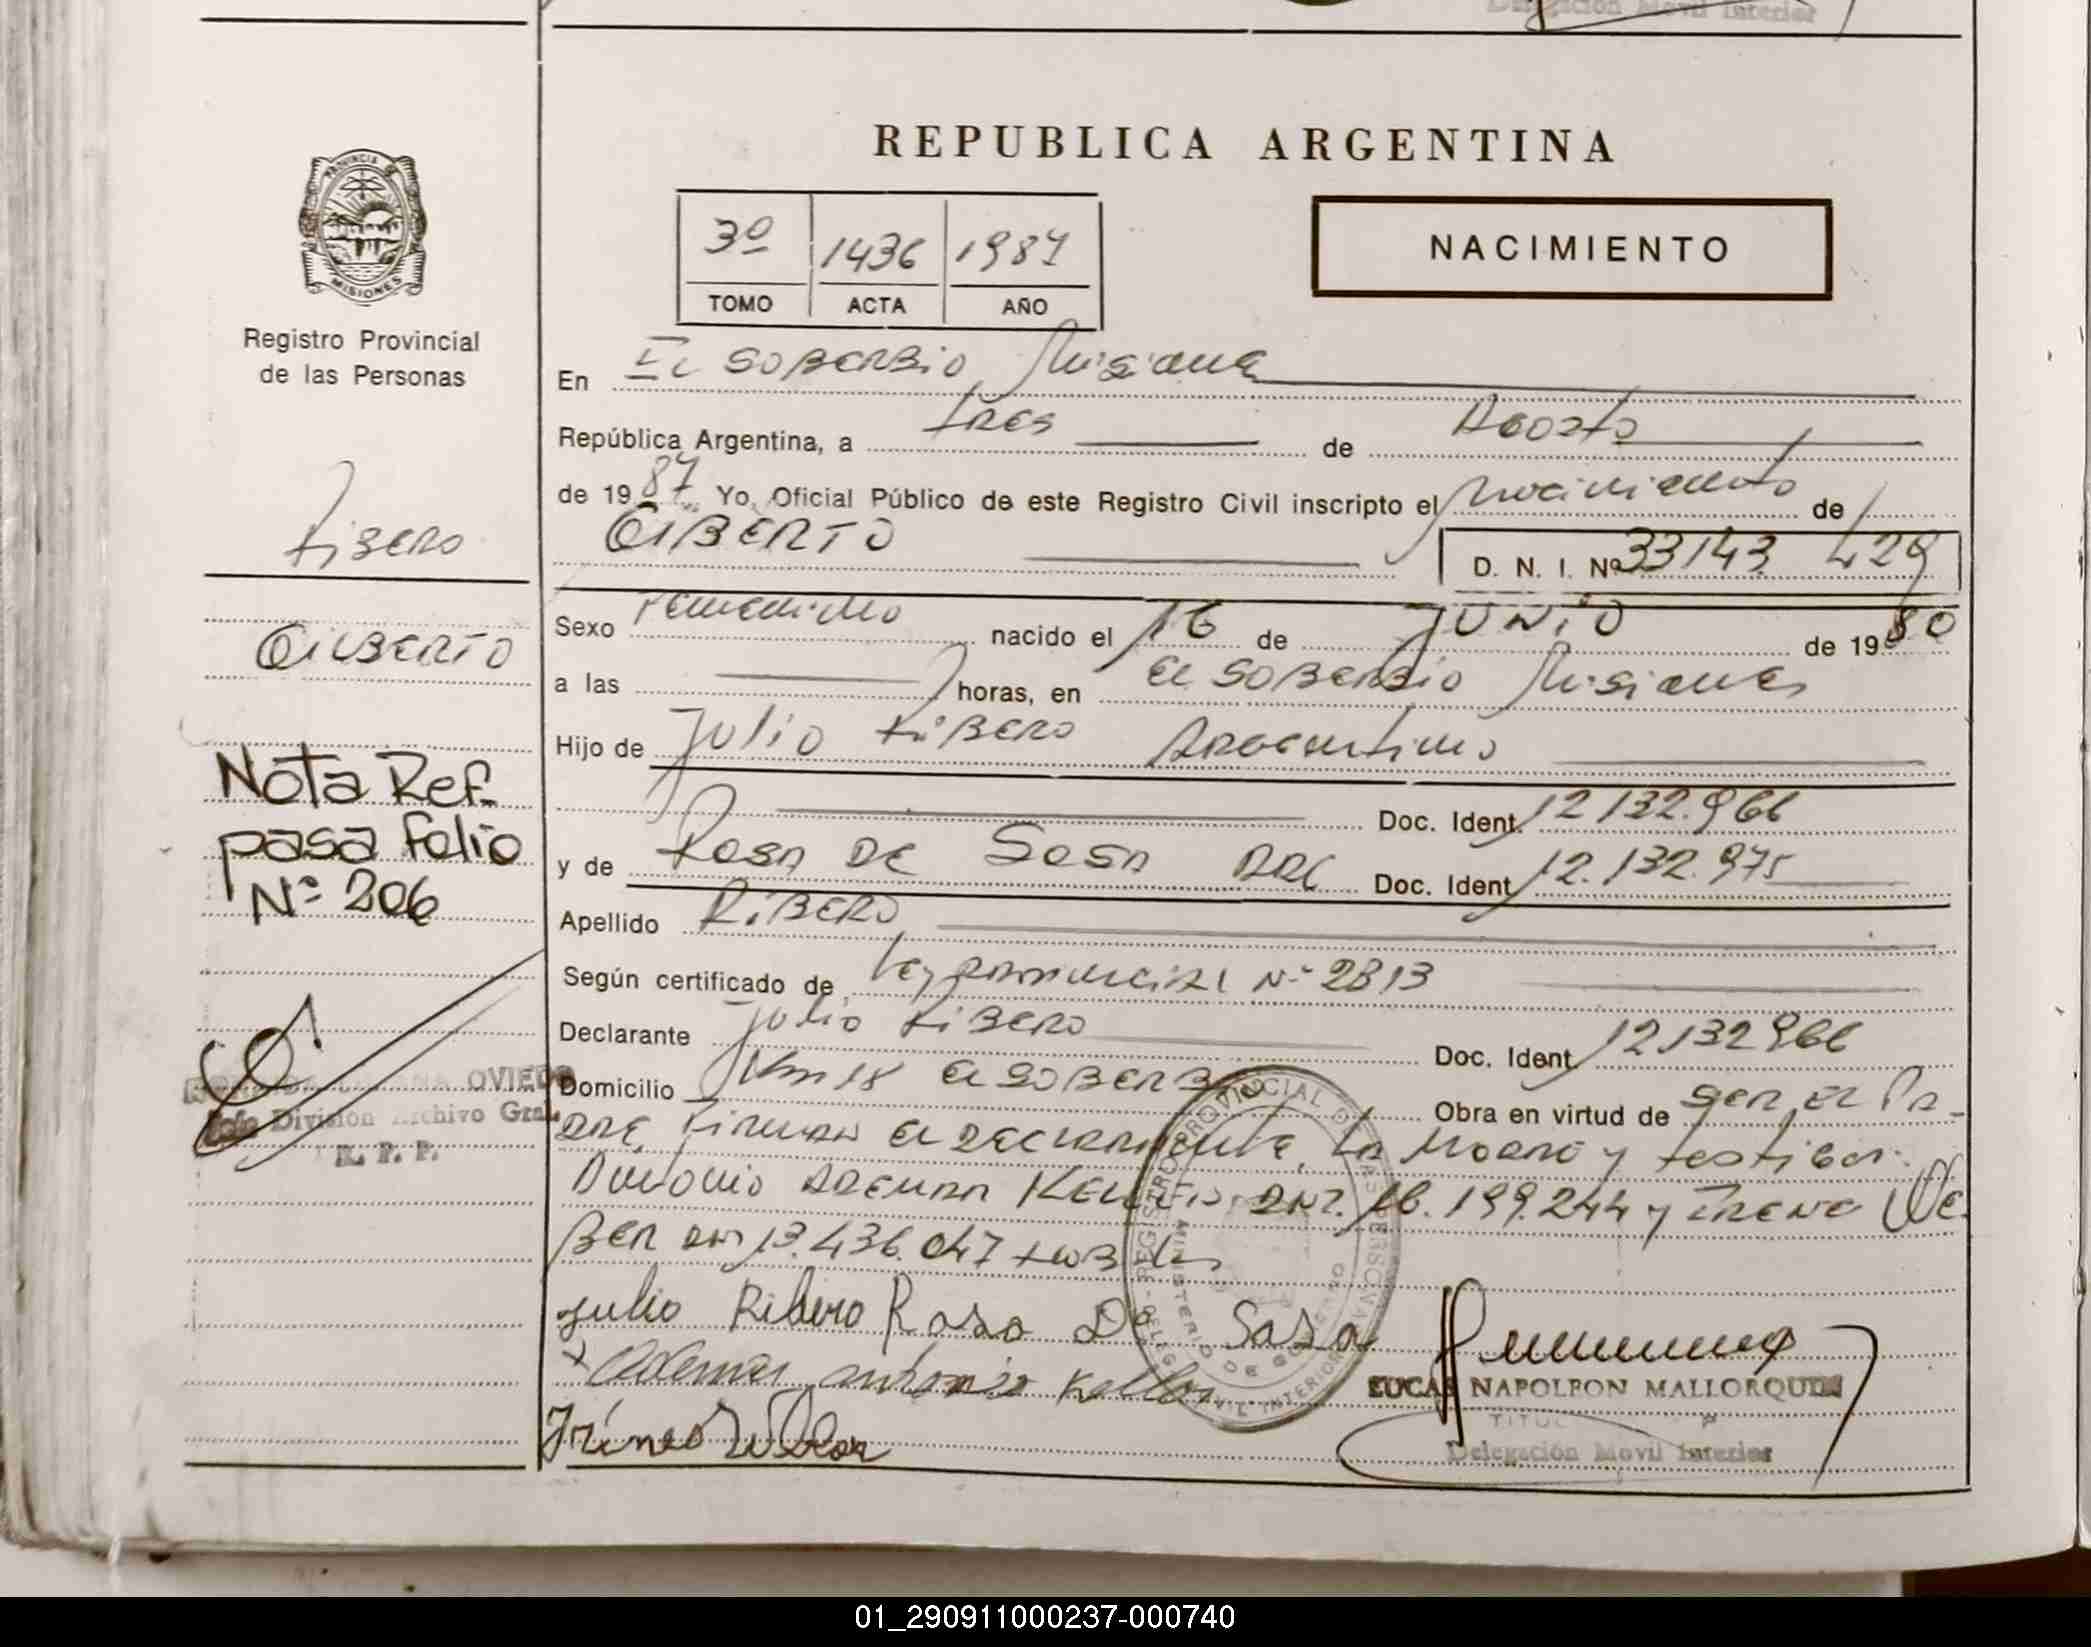 Delegación Movil Interior
REPUBLICA ARGENTINA
PROVINCIA DE MISIONES
Registro Provincial
de las Personas
3º 1436 1987
TOMO ACTA AÑO
NACIMIENTO
En El Soberbio, Misiones
República Argentina, a tres de Agosto
de 1987 Yo, Oficial Público de este Registro Civil inscripto el nacimiento de
GILBERTO D. N. I. Nº 33143 429
Sexo Femenino nacido el 16 de JUNIO de 1980
a las horas, en El Soberbio Misiones
Hijo de Julio Ribero Argentino
Doc. Ident. 12132.966
y de Rosa De Sosa DDE Doc. Ident 12.132.975
Apellido RIBERO
Según certificado de Ley provincial Nº 2813
Declarante Julio Ribero Doc. Ident. 12132966
Domicilio Km 18 El Soberbio Obra en virtud de ser el Pa-
dre, Firman el declarante, la madre y testigos:
Antonio Ademar Keller DNI. 16.199.244 y Irene We
ber DNI 13.436.047
Julio Ribero Rosa De Sosa
Ademar antonio Keller
LUCAS NAPOLEON MALLORQUIN
Delegación Movil Interior
Ribero
GILBERTO
Nota Ref.
pasa folio
Nº 206
OVIEDO
Jefe División Archivo Gral.
R. P. P.
REGISTRO PROVINCIAL DE LAS PERSONAS
MINISTERIO DE GOBIERNO
01_290911000237-000740